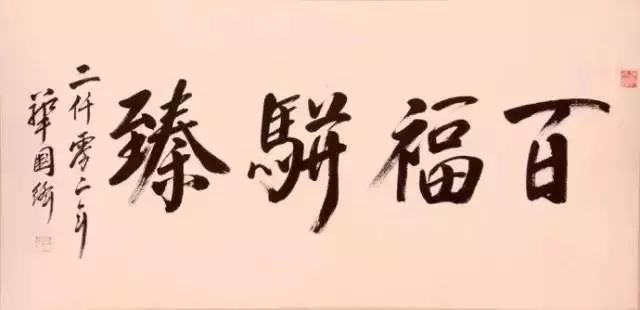 百福駢臻
二仟零二年
華國鋒